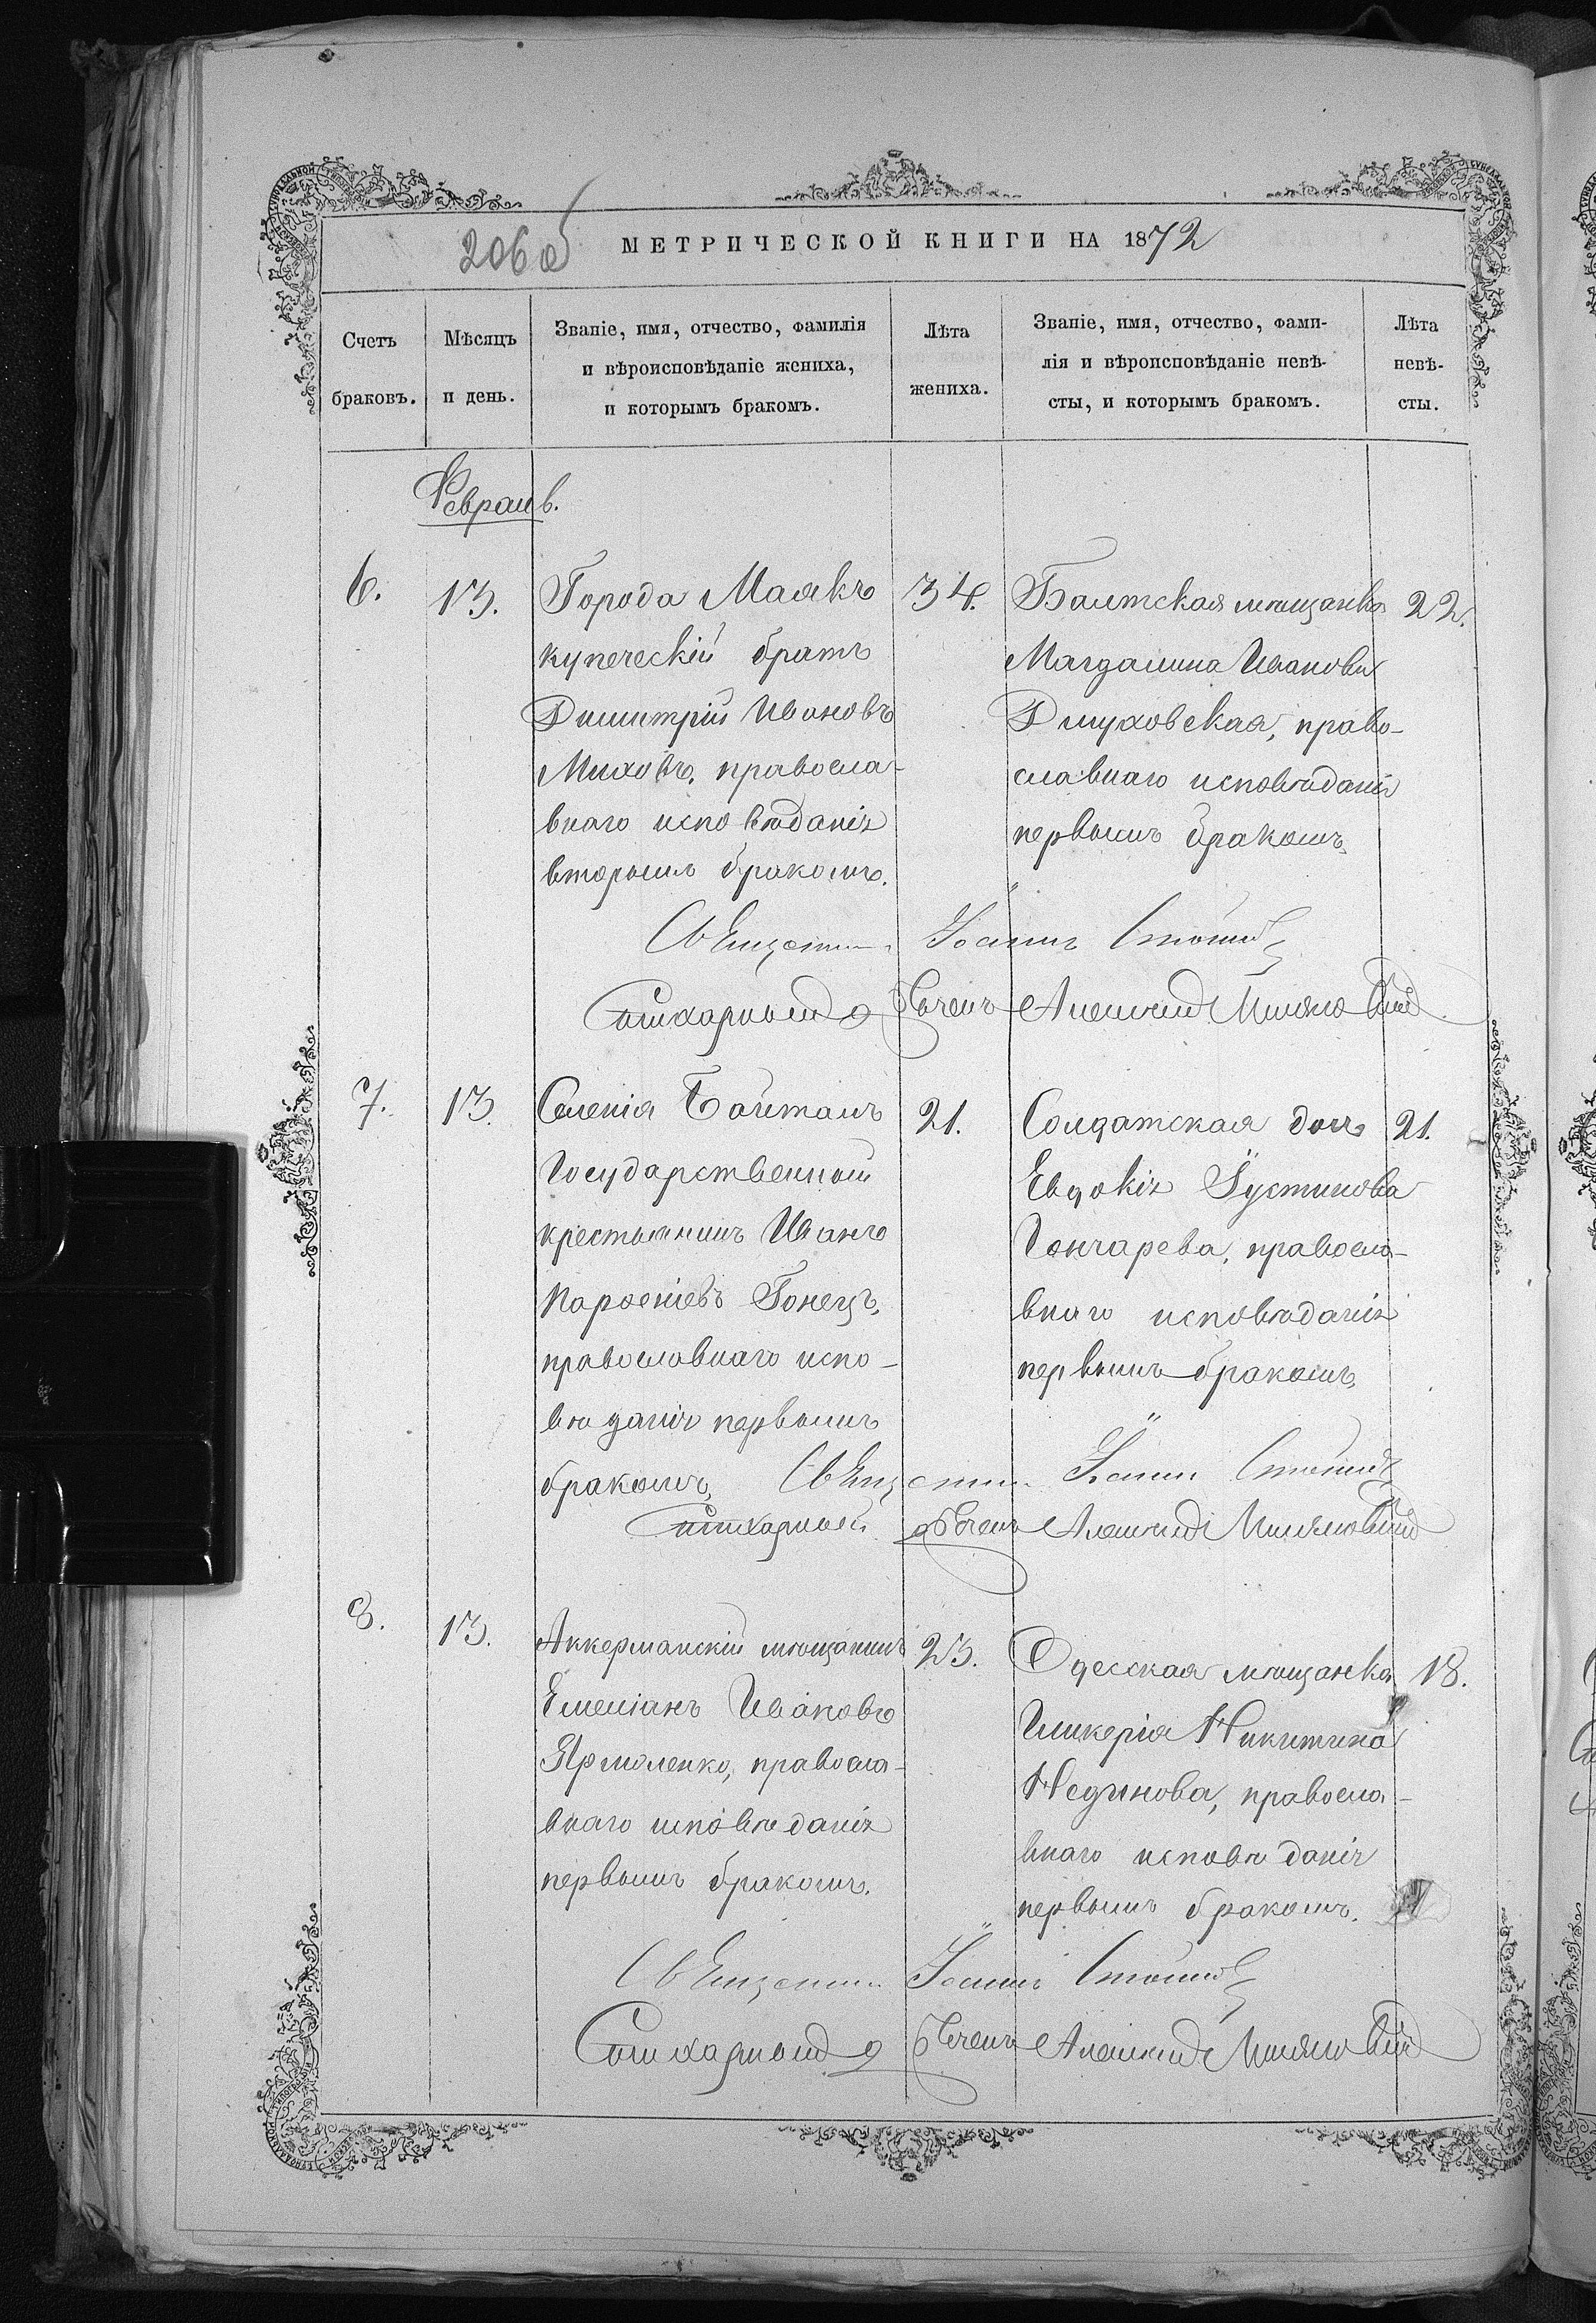 206 об
МЕТРИЧЕСКОЙ КНИГИ НА 1872
Счетъ браковъ.
Мѣсяцъ и день.
Званіе, имя, отчество, фамилія
и вѣроисповѣданіе жениха,
и которымъ бракомъ.
Лѣта жениха.
Званіе, имя, отчество, фами-
лія и вѣроисповѣданіе невѣ-
сты, и которымъ бракомъ.
Лѣта невѣ-
сты.
Февраль.
6.
13.
Города Маякъ
купеческій братъ
Димитрій Ивановъ
Миховъ, правосла-
внаго исповѣданія
вторымъ бракомъ.
34.
Балтская мѣщанка
Магдалина Иванова
Длуховская, право-
славнаго исповѣданія
первымъ бракомъ,
22.
Священникъ Іоаннъ
Стихарный Дьячекъ Алексій
7.
13.
Селенія Байталъ
Государственный
крестьянинъ Иванъ
Парѳеніевъ Гонецъ,
православнаго испо-
вѣданія первымъ
бракомъ,
21.
Солдатская дочь
Евдокія Іустинова
Гончарева, правосла-
внаго исповѣданія
первымъ бракомъ,
21.
Священникъ Іоаннъ
Стихарный Дьячекъ Алексій
8.
13.
Аккерманскій мѣщанинъ
Емеліанъ Ивановъ
Ярмоленко, правосла-
внаго исповѣданія
первымъ бракомъ.
23.
Одесская мѣщанка
Гликерія Никитина
Нединова, правосла-
внаго исповѣданія
первымъ бракомъ.
18.
Священникъ Іоаннъ
Стихарный Дьячекъ Алексій